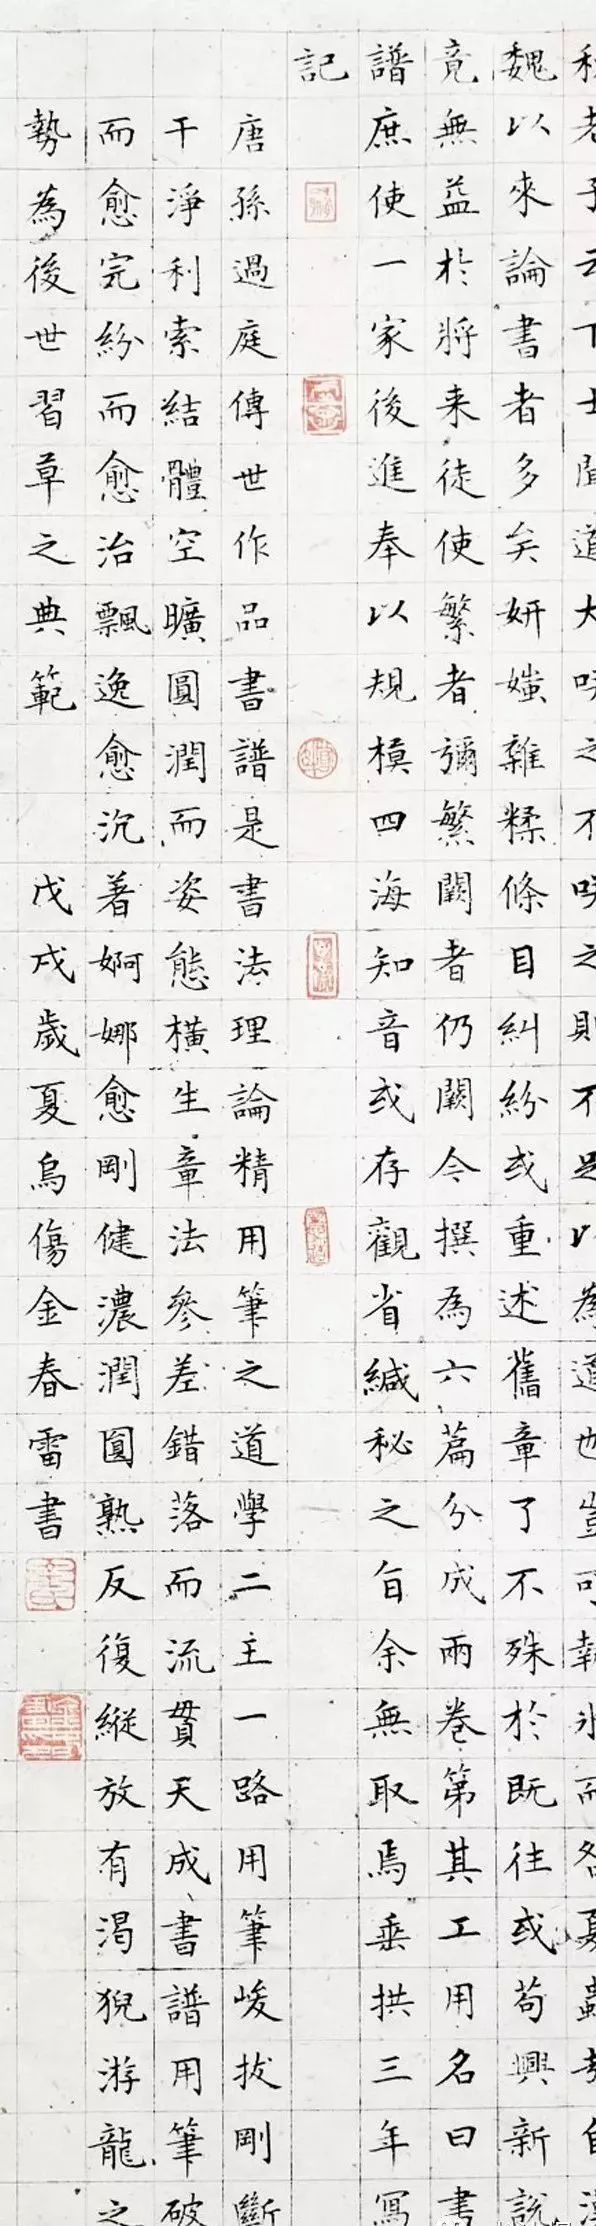 秋老子云下士聞道大咲之不咲之則不足以為道也豈可執冰而咎夏蟲哉自漢
魏以來論書者多矣妍媸雜糅條目糾紛或重述舊章了不殊於既往或苟興新說
竟無益於將来徒使繁者彌繁闕者仍闕今撰為六篇分成兩卷第其工用名曰書
譜庶使一家後進奉以規模四海知音或存觀省緘秘之旨余無取焉垂拱三年寫
記
唐孫過庭傳世作品書譜是書法理論精用筆之道學二主一路用筆峻拔剛斷
干淨利索結體空曠圓潤而姿態橫生章法參差錯落而流貫天成書譜用筆破
而愈完紛而愈治飄逸愈沉著婀娜愈剛健濃潤圓熟反復縱放有渴猊游龍之
勢為後世習草之典範 戊戌歲夏烏傷金春雷書